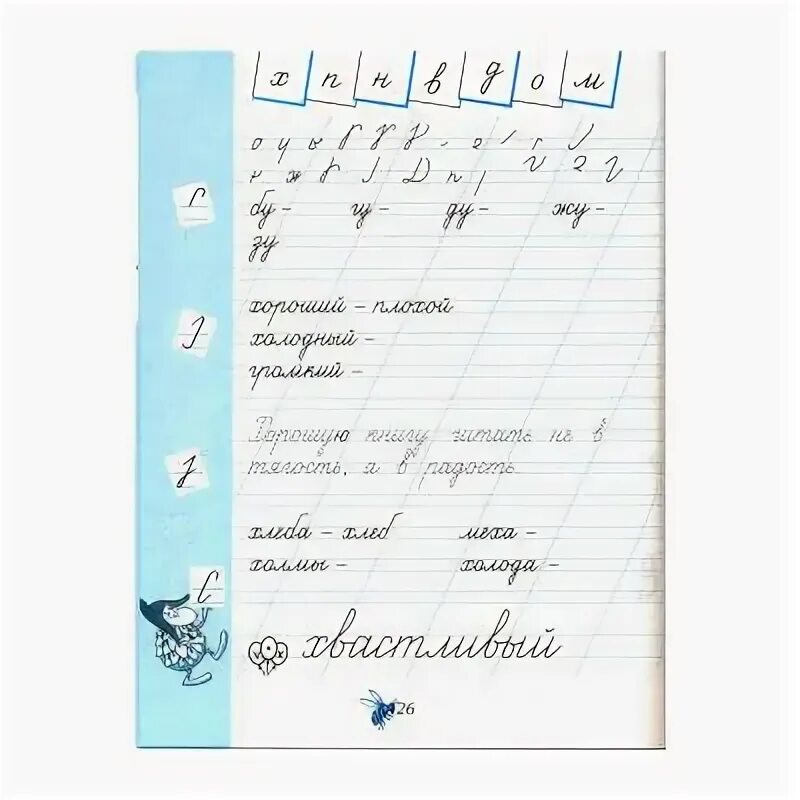 х п н в д о м
бу - гу - ду - жу -
зу
хороший - плохой
холодный -
громкий -
Хорошую книгу читать не в
тягость, а в радость
хлеба - хлеб меха -
холмы - холода -
хвастливый
26